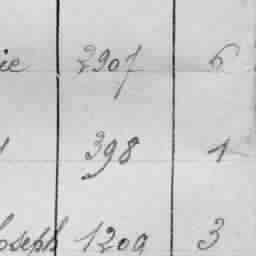 ie 2907 6
398 1
Joseph 1209 3